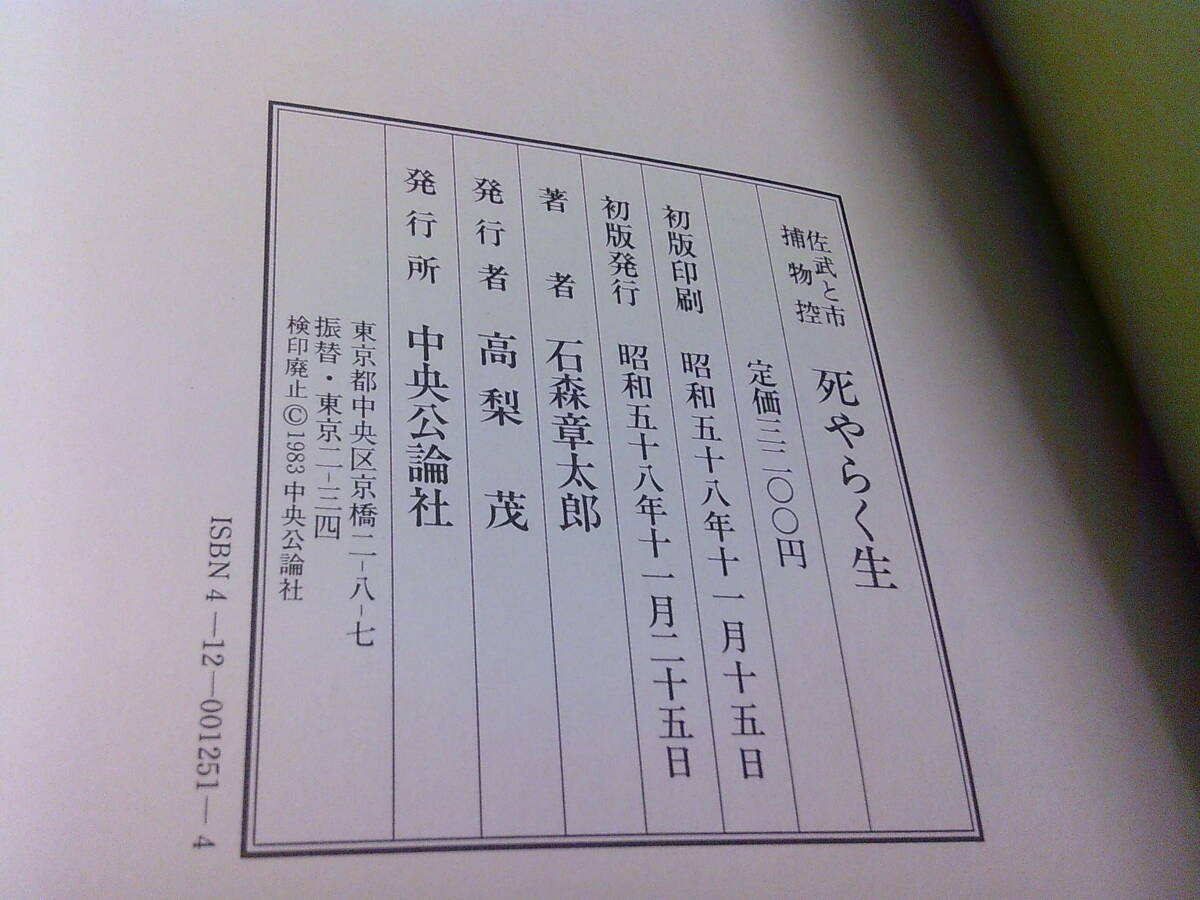 佐武と市
捕物控
死やらく生
定価三二〇〇円
初版印刷 昭和五十八年十一月十五日
初版発行 昭和五十八年十一月二十五日
著者 石森章太郎
発行者 高梨 茂
発行所 中央公論社
東京都中央区京橋二-八-七
振替・東京二-三四
検印廃止 © 1983 中央公論社
ISBN 4—12—001251—4